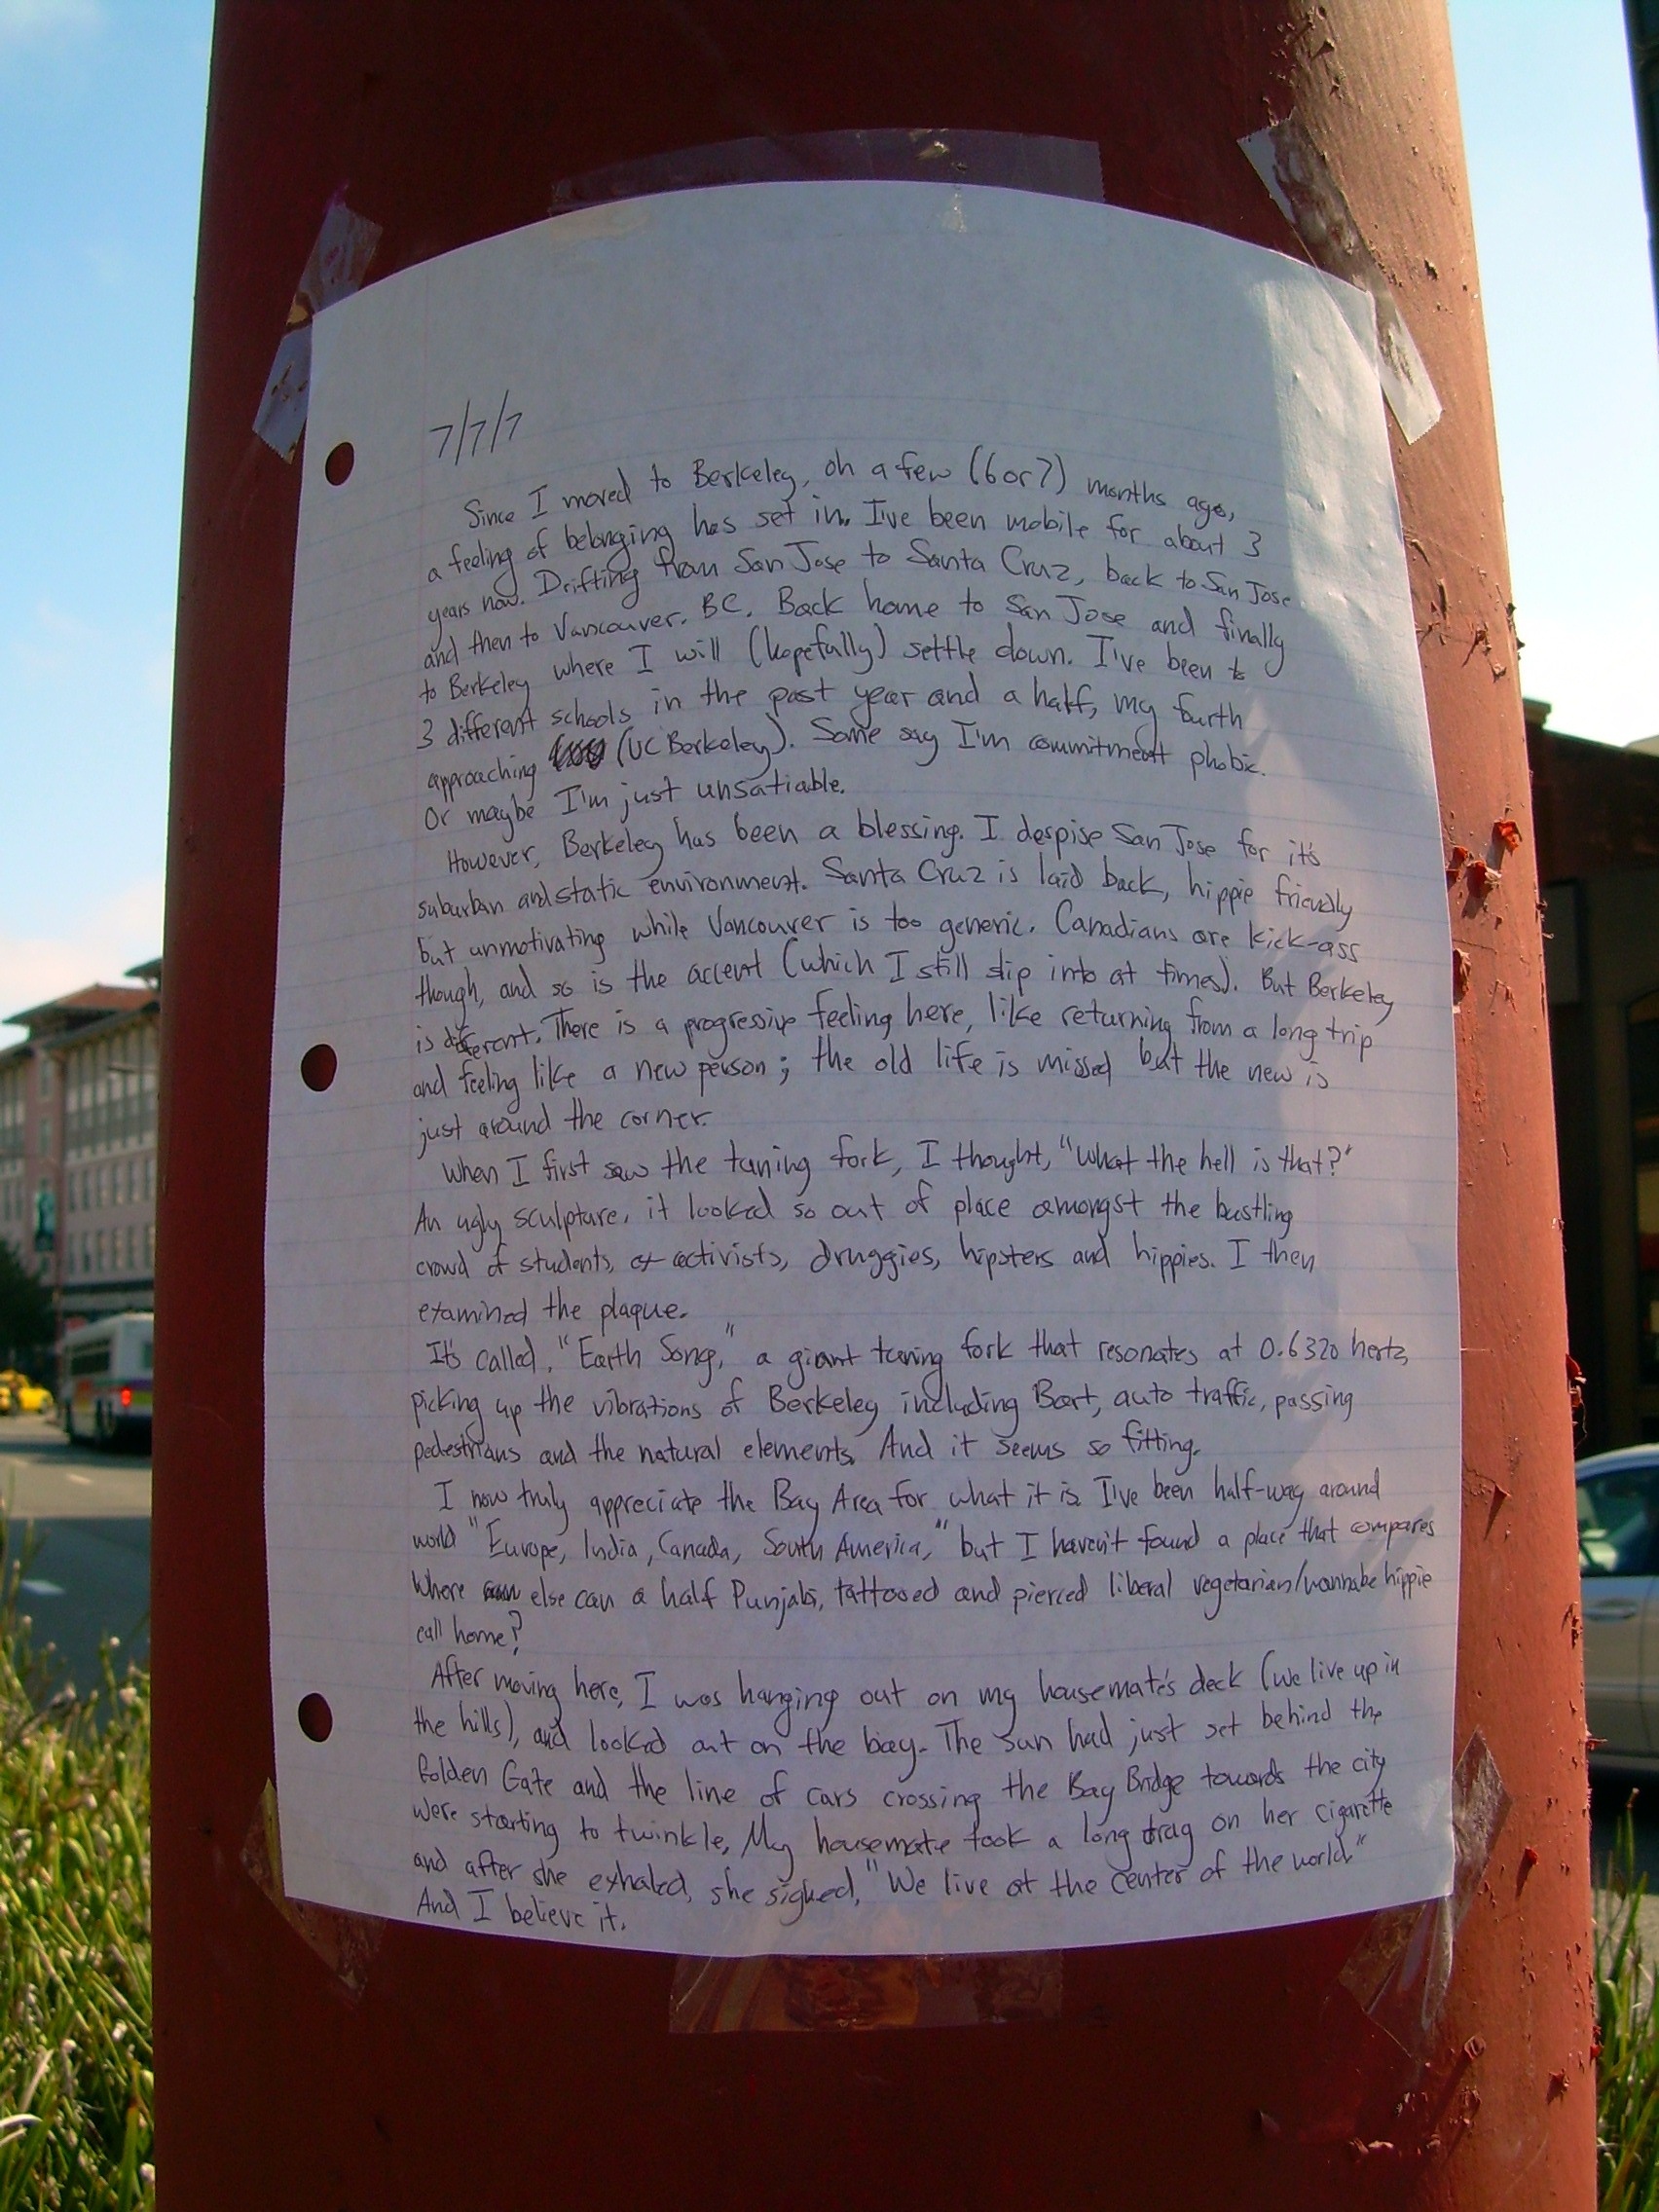 7/7/7
Since I moved to Berkeley, oh a few (6 or 7) months ago,
a feeling of belonging has set in. I've been mobile for about 3
years now. Drifting from San Jose to Santa Cruz, back to San Jose
and then to Vancouver. BC. Back home to San Jose and finally
to Berkeley where I will (hopefully) settle down. I've been to
3 different schools in the past year and a half, my fourth
approaching (UC Berkeley). Some say I'm commitment phobic.
Or maybe I'm just unsatiable.
However, Berkeley has been a blessing. I despise San Jose for it's
suburban and static environment. Santa Cruz is laid back, hippie friendly
but unmotivating while Vancouver is too generic. Canadians are kick-ass
though, and so is the accent (which I still slip into at times). But Berkeley
is different. There is a progressive feeling here, like returning from a long trip
and feeling like a new person; the old life is missed but the new is
just around the corner.
When I first saw the tuning fork, I thought, "What the hell is that?"
An ugly sculpture, it looked so out of place amongst the bustling
crowd of students, ex-activists, druggies, hipsters and hippies. I then
examined the plaque.
It's called, "Earth Song," a giant tuning fork that resonates at 0.6320 hertz,
picking up the vibrations of Berkeley including Bart, auto traffic, passing
pedestrians and the natural elements. And it seems so fitting.
I now truly appreciate the Bay Area for what it is. I've been half-way around
world "Europe, India, Canada, South America," but I haven't found a place that compares
Where else can a half Punjabi, tattooed and pierced liberal vegetarian/wannabe hippie
call home?
After moving here, I was hanging out on my housemate's deck (we live up in
the hills), and looked out on the bay. The sun had just set behind the
Golden Gate and the line of cars crossing the Bay Bridge towards the city
were starting to twinkle, My housemate took a long drag on her cigarette
and after she exhaled, she sighed, "We live at the center of the world."
And I believe it.